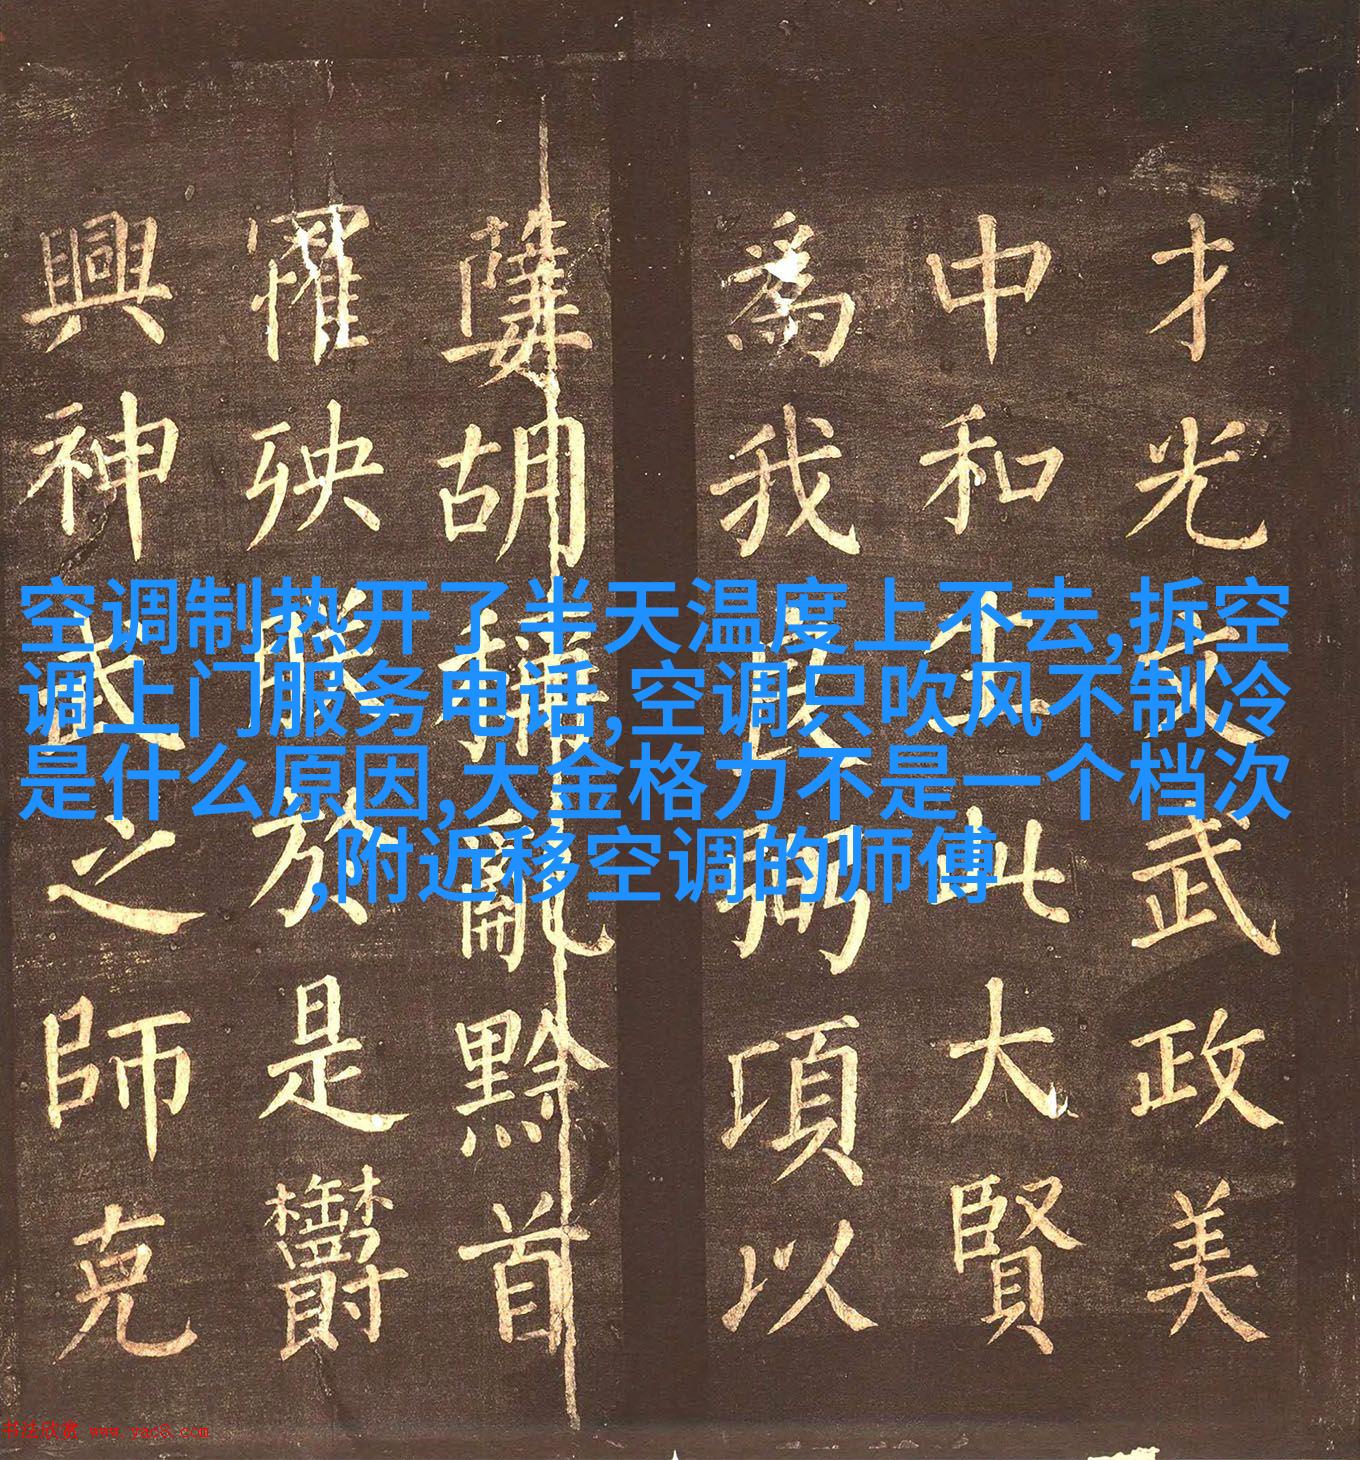 空调制热开了半天温度上不去,拆空
调上门服务电话,空调只吹风不制冷
是什么原因,大金格力不是一个档次
,附近移空调的师傅
才光武政美
中和生此大賢
為我良弼項以
胡稱亂黔首
罹殃於是鬱
興神武之師克
书法欣赏 www.yac8.com